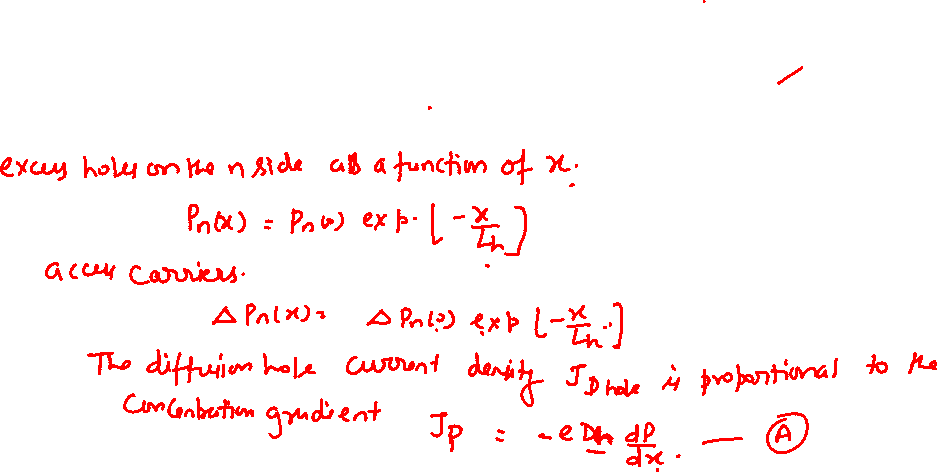 excess holes on the n side as a function of x.
Pn(x) = Pn(0) exp. [-x/Lh]
access carriers.
Δ Pn(x) = Δ Pn(0) exp [-x/Lh]
The diffusion hole current density J_D hole is proportional to the
concentration gradient
Jp = -e Dh dP/dx. — (A)